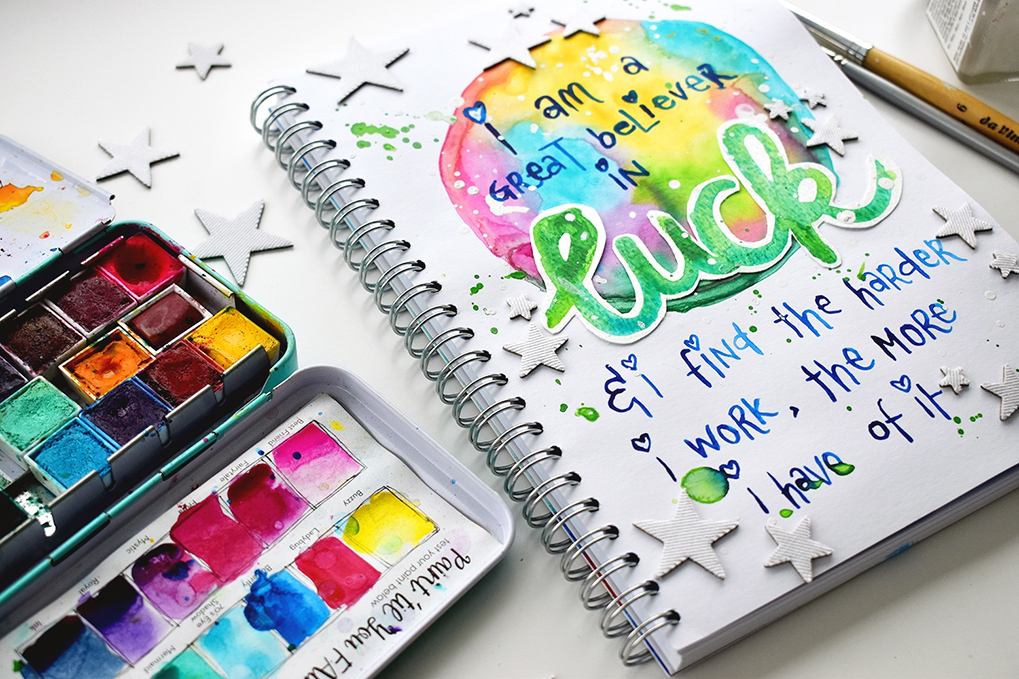 i am a
GReaT beLieVeR
iN
luck
& i find the harder
i WORK, the MORE
i have of it
6
da Vin
Best Friend
Fairytale
Mystic
Royal
Ink
Buzzy
Ladybug
Butterfly
70's Eye
Shadow
Mermaid
test your paint below
Paint 'til you FA